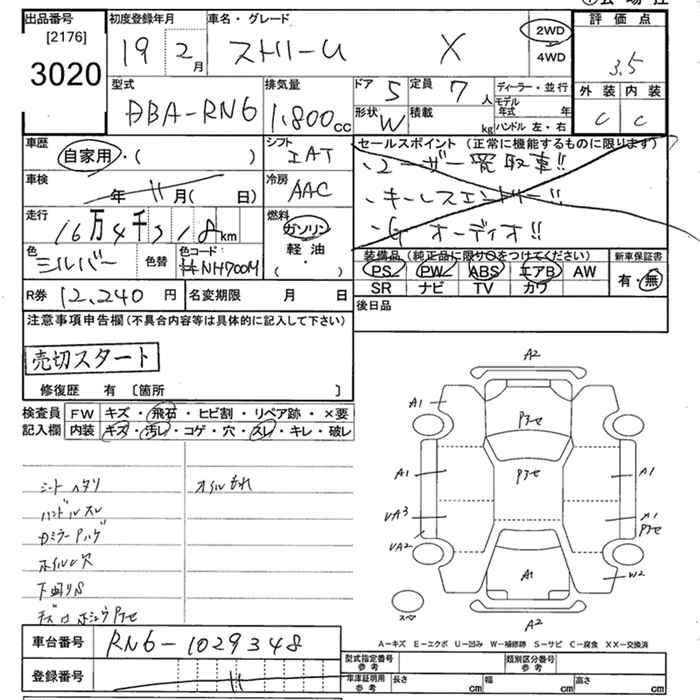 出品番号 初度登録年月 車名・グレード 評価点
[2176]
3020 19 2月 ストリーム X 2WD 4WD 3.5
型式 排気量 ドア 5 定員 7人 ディーラー・並行 外装 内装
DBA-RN6 1,800cc 形状 W 積載 kg モデル年式 年 ハンドル 左・右 C C
車歴 シフト セールスポイント (正常に機能するものに限ります)
自家用・( ) IAT ・ユーザー買取車!!
車検 年 11月( 日) 冷房 AAC ・キーレスエントリー!!
走行 16万4千318km 燃料 ガソリン ・G オーディオ!!
色 シルバー 色替 色コード # NH700M 軽油 ( ・ )
装備品 (純正品に限り○をつけてください) 新車保証書
PS PW ABS エアB AW 有・無
SR ナビ TV カワ
R券 12,240円 名変期限 月 日 後日品
注意事項申告欄(不具合内容等は具体的に記入して下さい)
売切スタート
修復歴 有 〔箇所 〕
検査員 FW キズ・飛石・ヒビ割・リペア跡・×要
記入欄 内装 キズ・汚レ・コゲ・穴・スレ・キレ・破レ
シートヘタリ オイルもれ
ハンドルスレ
ホイル穴
下回りS
A2
A1 Pアセ
A1 Pアセ A1
UA3 A1 Pアセ
UA2 A1 W2
スペア A2
A-キズ E-エクボ U-凹み W-補修跡 S-サビ C-腐食 XX-交換済
車台番号 RN6-1029348
登録番号
型式指定番号 参考 類別区分番号 参考
車庫証明用 参考 長さ cm 幅 cm 高さ cm